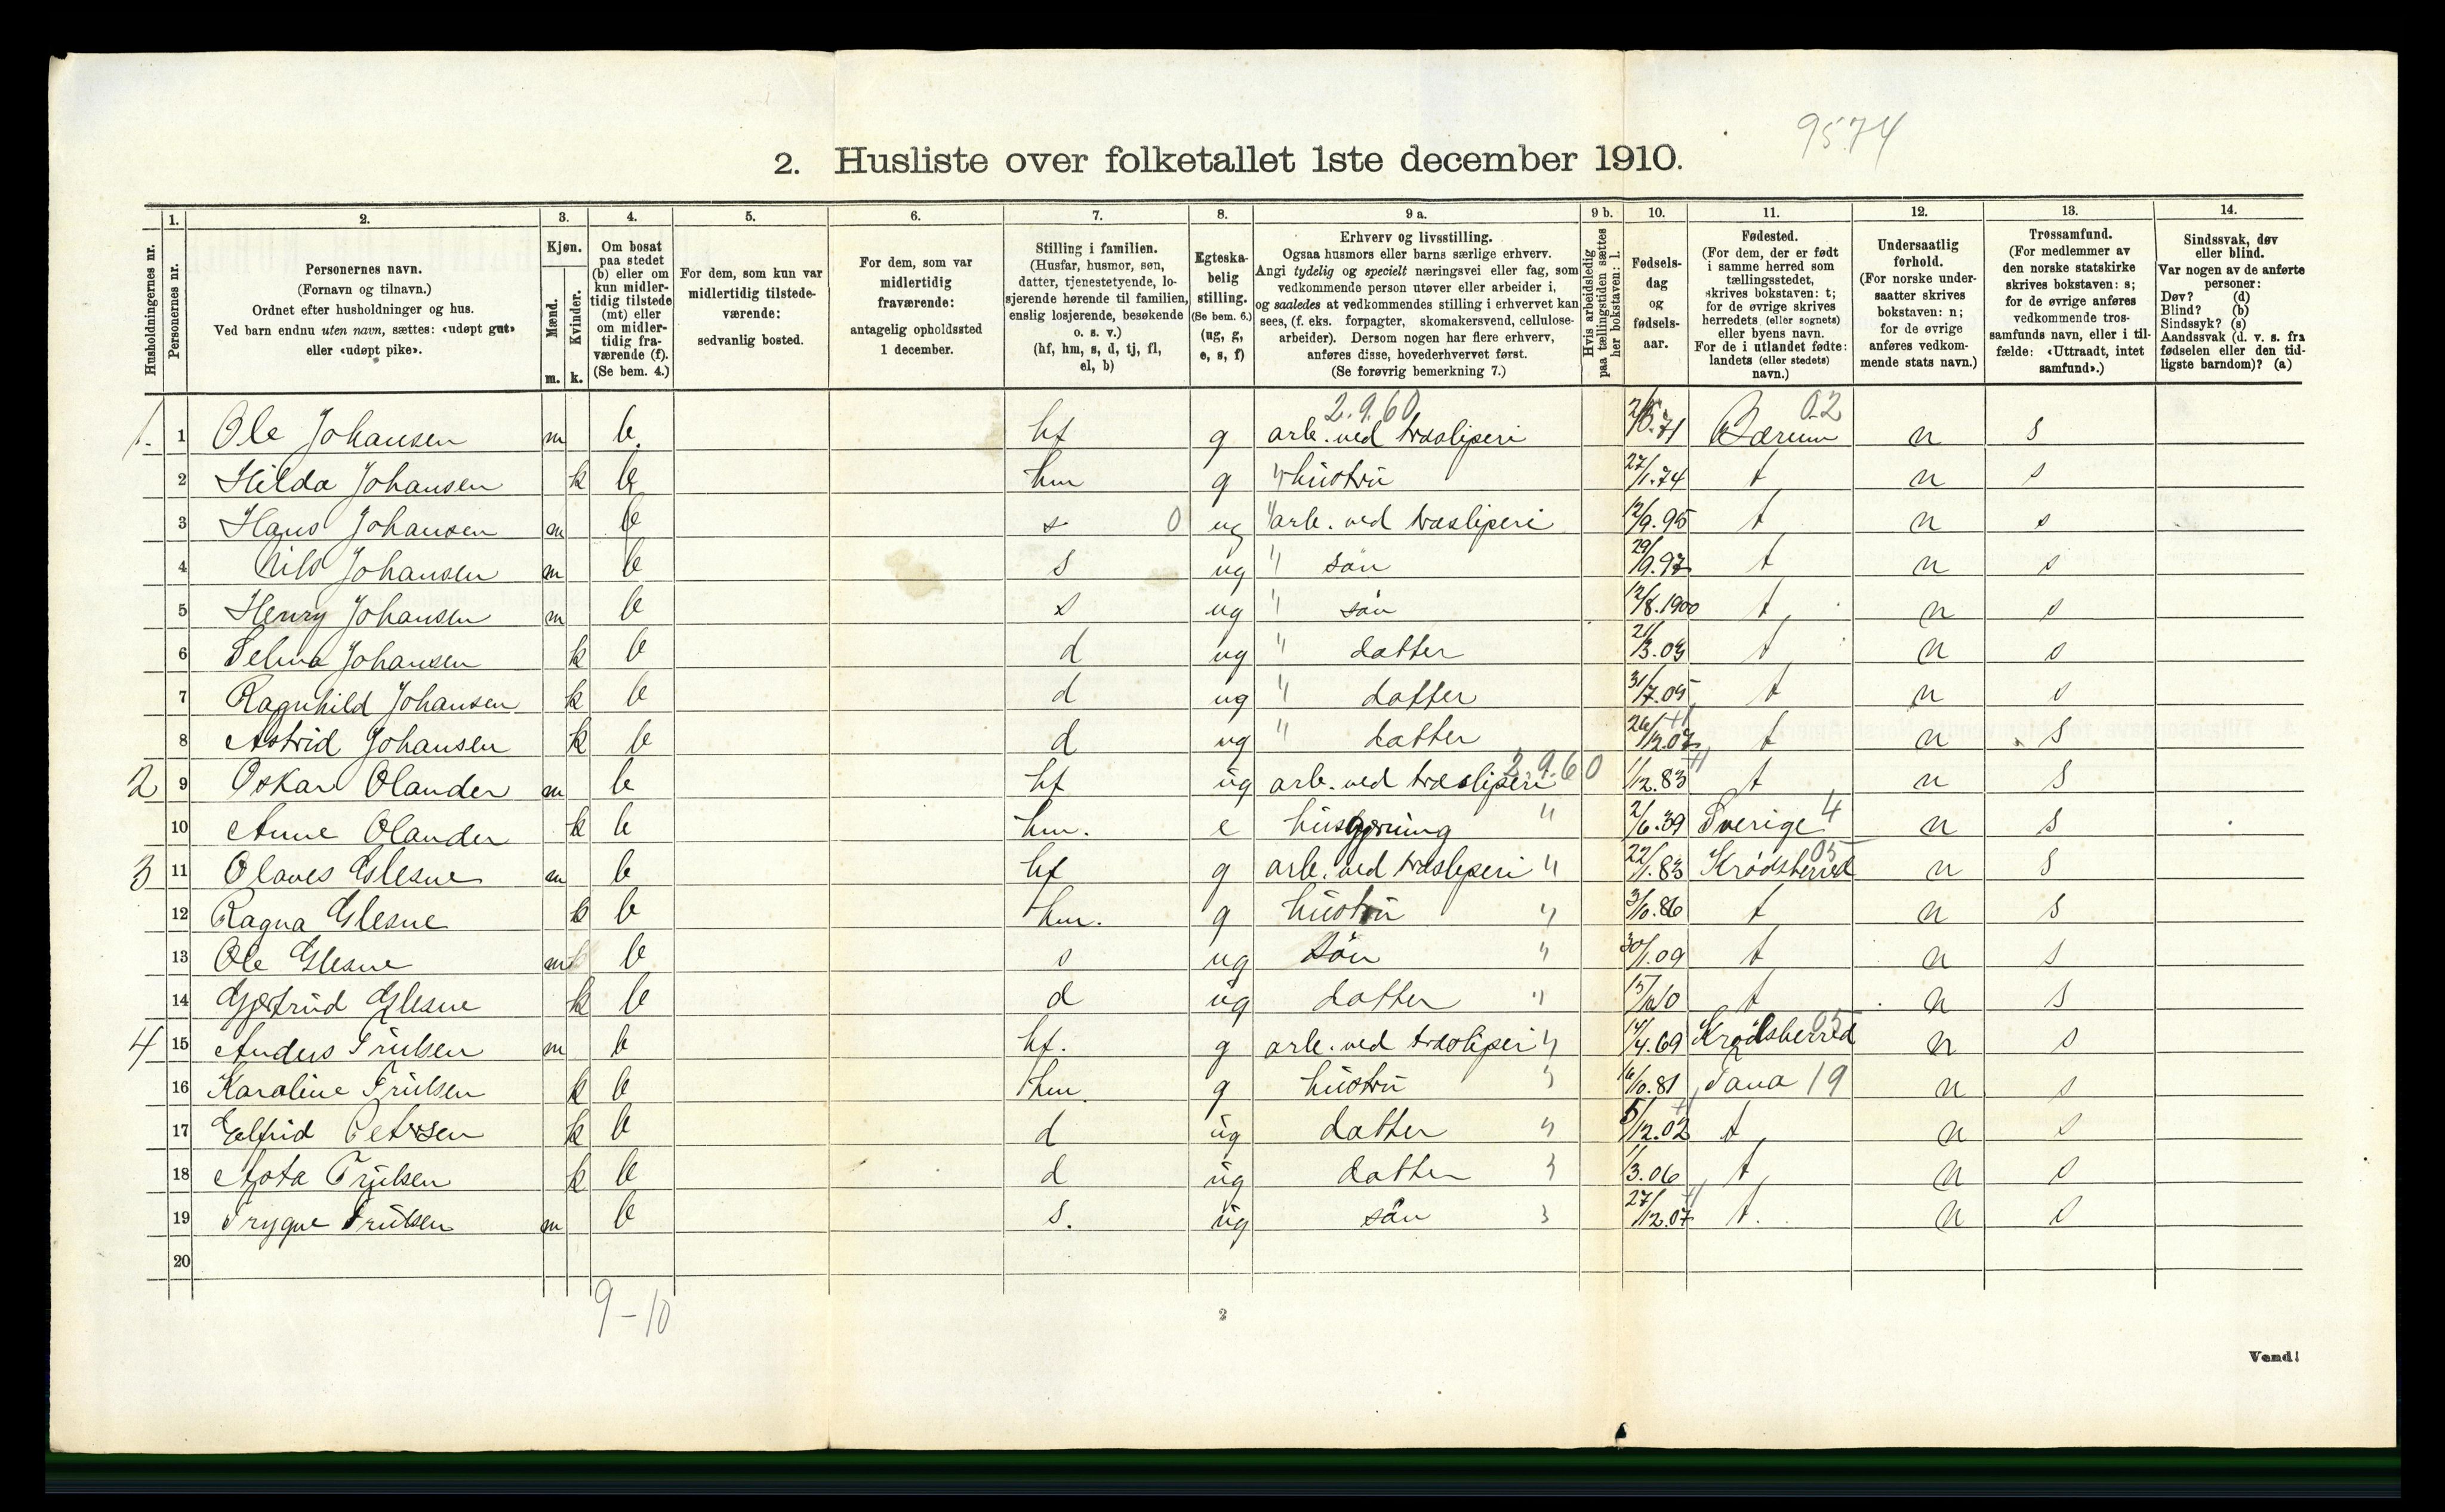 9574
2. Husliste over folketallet 1ste december 1910.
Husholdningernes nr.
1.
Personernes nr.
2.
Personernes navn.
(Fornavn og tilnavn.)
Ordnet efter husholdninger og hus.
Ved barn endnu uten navn, sættes: «udøpt gut»
eller «udøpt pike».
3.
Kjøn.
Mænd.
m.
Kvinder.
k.
4.
Om bosat
paa stedet
(b) eller om
kun midler-
tidig tilstede
(mt) eller
om midler-
tidig fra-
værende (f).
(Se bem. 4.)
5.
For dem, som kun var
midlertidig tilstede-
værende:
sedvanlig bosted.
6.
For dem, som var
midlertidig
fraværende:
antagelig opholdssted
1 december.
7.
Stilling i familien.
(Husfar, husmor, søn,
datter, tjenestetyende, lo-
sjerende hørende til familien,
enslig losjerende, besøkende
o. s. v.)
(hf, hm, s, d, tj, fl,
el, b)
8.
Egteska-
belig
stilling.
(Se bem. 6.)
(ug, g,
e, s, f)
9 a.
Erhverv og livsstilling.
Ogsaa husmors eller barns særlige erhverv.
Angi tydelig og specielt næringsvei eller fag, som
vedkommende person utøver eller arbeider i,
og saaledes at vedkommendes stilling i erhvervet kan
sees, (f. eks. forpagter, skomakersvend, cellulose-
arbeider). Dersom nogen har flere erhverv,
anføres disse, hovederhvervet først.
(Se forøvrig bemerkning 7.)
9 b.
Hvis arbeidsledig
paa tællingstiden sættes
her bokstaven: l.
10.
Fødsels-
dag
og
fødsels-
aar.
11.
Fødested.
(For dem, der er født
i samme herred som
tællingsstedet,
skrives bokstaven: t;
for de øvrige skrives
herredets (eller sognets)
eller byens navn.
For de i utlandet fødte:
landets (eller stedets)
navn.)
12.
Undersaatlig
forhold.
(For norske under-
saatter skrives
bokstaven: n;
for de øvrige
anføres vedkom-
mende stats navn.)
13.
Trossamfund.
(For medlemmer av
den norske statskirke
skrives bokstaven: s;
for de øvrige anføres
vedkommende tros-
samfunds navn, eller i til-
fælde: «Uttraadt, intet
samfund».)
14.
Sindssvak, døv
eller blind.
Var nogen av de anførte
personer:
Døv? (d)
Blind? (b)
Sindssyk? (s)
Aandssvak (d. v. s. fra
fødselen eller den tid-
ligste barndom)? (a)
2.9.60 02
1. 1 Ole Johansen m b. hf g arb. ved træsliperi 71 Bærum n s
2 Hilda Johansen k b hm g " hustru 27/1.74 t n s
3 Hans Johansen m b s 0 ug " arb. ved træsliperi 12/9.95 t n s
4 Nils Johansen m b s ug " søn 29/9.97 t n s
5 Henry Johansen m b s ug " søn 12/8.1900 t n s
6 Selma Johansen k b d ug " datter 21/3.03 t n s
7 Ragnhild Johansen k b d ug " datter 31/7.05 t n s
8 Astrid Johansen k b d ug " datter 26/12.07 t n s
2 9 Oskar Olander m b hf ug arb. ved træsliperi 2.9.60 1/12.83 t n s
10 Anne Olander k b hm. e husgjerning " 2/6.39 Sverige 4 n s
3 11 Olaves Glesne m b hf g arb. ved træsliperi " 22/1.83 Krødsherred 05 n s
12 Ragna Glesne k b hm. g hustru " 3/10.86 t n s
13 Ole Glesne m b s ug søn " 30/1.09 t n s
14 Gjertrud Glesne k b d ug datter " t n s
4 15 Anders Trulsen m b hf. g arb. ved træsliperi " 14/4.69 Krødsherred 05 n s
16 Karoline Trulsen k b hm. g hustru " 16/10.81 Tana 19 n s
17 Elfrid Petersen k b d ug datter " 5/12.02 t n s
18 Asta Trulsen k b d ug datter " 1/3.06 t n s
19 Trygve Trulsen m b s. ug søn " 27/12.07 t. n s
20
9-10
2
Vend!